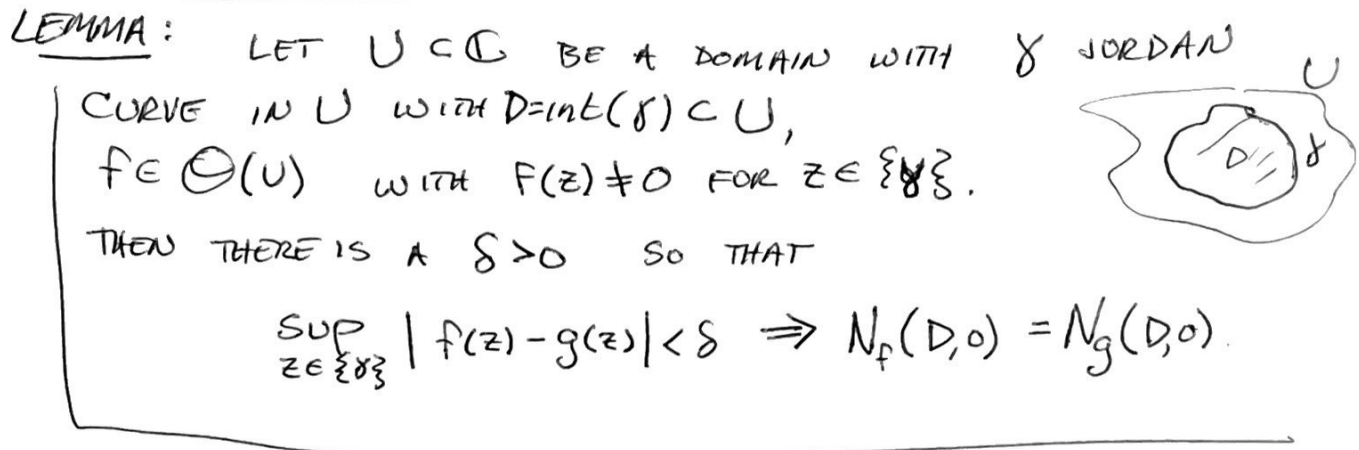 LEMMA: LET U ⊂ ℂ BE A DOMAIN WITH γ JORDAN
CURVE IN U WITH D=int(γ) ⊂ U,
f ∈ O(U) WITH F(z) ≠ 0 FOR z ∈ {γ}.
THEN THERE IS A δ>0 SO THAT
sup_{z∈{γ}} | f(z) - g(z)| < δ ⇒ N_f(D,0) = N_g(D,0).
U
D
γ